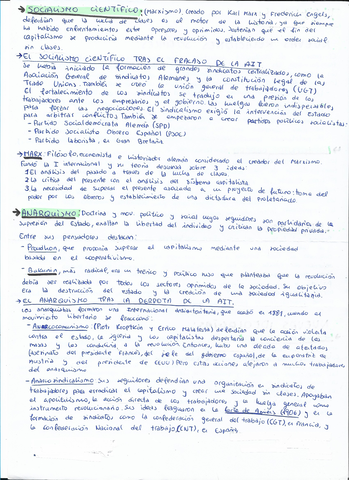 → SOCIALISMO CIENTÍFICO: (marxismo) creado por Karl Marx y Frederich Engels,
defendían que la lucha de clases es el motor de la historia, ya que siempre
ha habido enfrentamientos entre opresores y oprimidos. Defendían que el fin del
capitalismo se produciría mediante la revolución y estableciendo un orden social
sin clases.
→ EL SOCIALISMO CIENTÍFICO TRAS EL FRACASO DE LA AIT
Se había iniciado la formación de grandes sindicatos centralizados, como la
Asociación General de Sindicatos Alemanes y la constitución legal de las
Trade Unions. También se creó la Unión general de trabajadores (UGT)
El fortalecimiento de los sindicatos se tradujo en una presión de los
trabajadores ante los empresarios y el gobierno. Las huelgas fueron indispensables
para forzar las negociaciones. El sindicalismo exigió la intervención del estado
para arbitrar conflictos. También se empezaron a crear partidos políticos socialistas:
- Partido Socialdemócrata Alemán (SPD)
- Partido Socialista Obrero Español (PSOE)
- Partido laborista, en Gran Bretaña
→ MARX: Filósofo, economista e historiador alemán considerado el creador del Marxismo.
Fundó la I Internacional y su teoría descansa sobre 3 ideas
1 El análisis del pasado a través de la lucha de clases
2 La crítica del presente con el análisis del sistema capitalista
3 La necesidad de superar el presente asociado a un proyecto de futuro: toma del
poder por los obreros y establecimiento de una dictadura del proletariado
→ ANARQUISMO: Doctrina y mov. político y social cuyos seguidores son partidarios de la
supresión del Estado, exaltan la libertad del individuo y critican la propiedad privada.
Entre sus pensadores destacan:
- Proudhon, que proponía superar el capitalismo mediante una sociedad
basada en el cooperativismo.
- Bakunin, más radical, era un teórico y político ruso que planteaba que la revolución
debía ser realizada por todos los sectores oprimidos de la sociedad. Su objetivo
era la destrucción del estado y la creación de una sociedad igualitaria.
• EL ANARQUISMO TRAS LA DERROTA DE LA AIT.
Los anarquistas formaron una Internacional antiautoritaria, que duró hasta 1881, cuando el
movimiento libertario se fraccionó:
- Anarcocomunismo: (Piotr Kropotkin y Errico Malatesta) defendían que la acción violenta
contra el estado, la iglesia y los capitalistas despertaría la conciencia de las
masas y las conduciría a la revolución. Entonces, hubo una oleada de atentados
(asesinato del presidente francés, del jefe del gobierno español, de la emperatriz de
Austria y del presidente de EEUU). Pero estas acciones alejaron a muchos trabajadores
del anarquismo
- Anarcosindicalismo: Sus seguidores defendían una organización en sindicatos de
trabajadores para erradicar el capitalismo y crear una sociedad sin clases. Apoyaban
el apoliticismo, la acción directa de los trabajadores y la huelga general como
instrumento revolucionario. Sus ideas figuraron en la Carta de Amiens (1906) y en la
formación de sindicatos como la confederación general del trabajo (CGT), en Francia, y
la confederación Nacional del trabajo (CNT), en España.